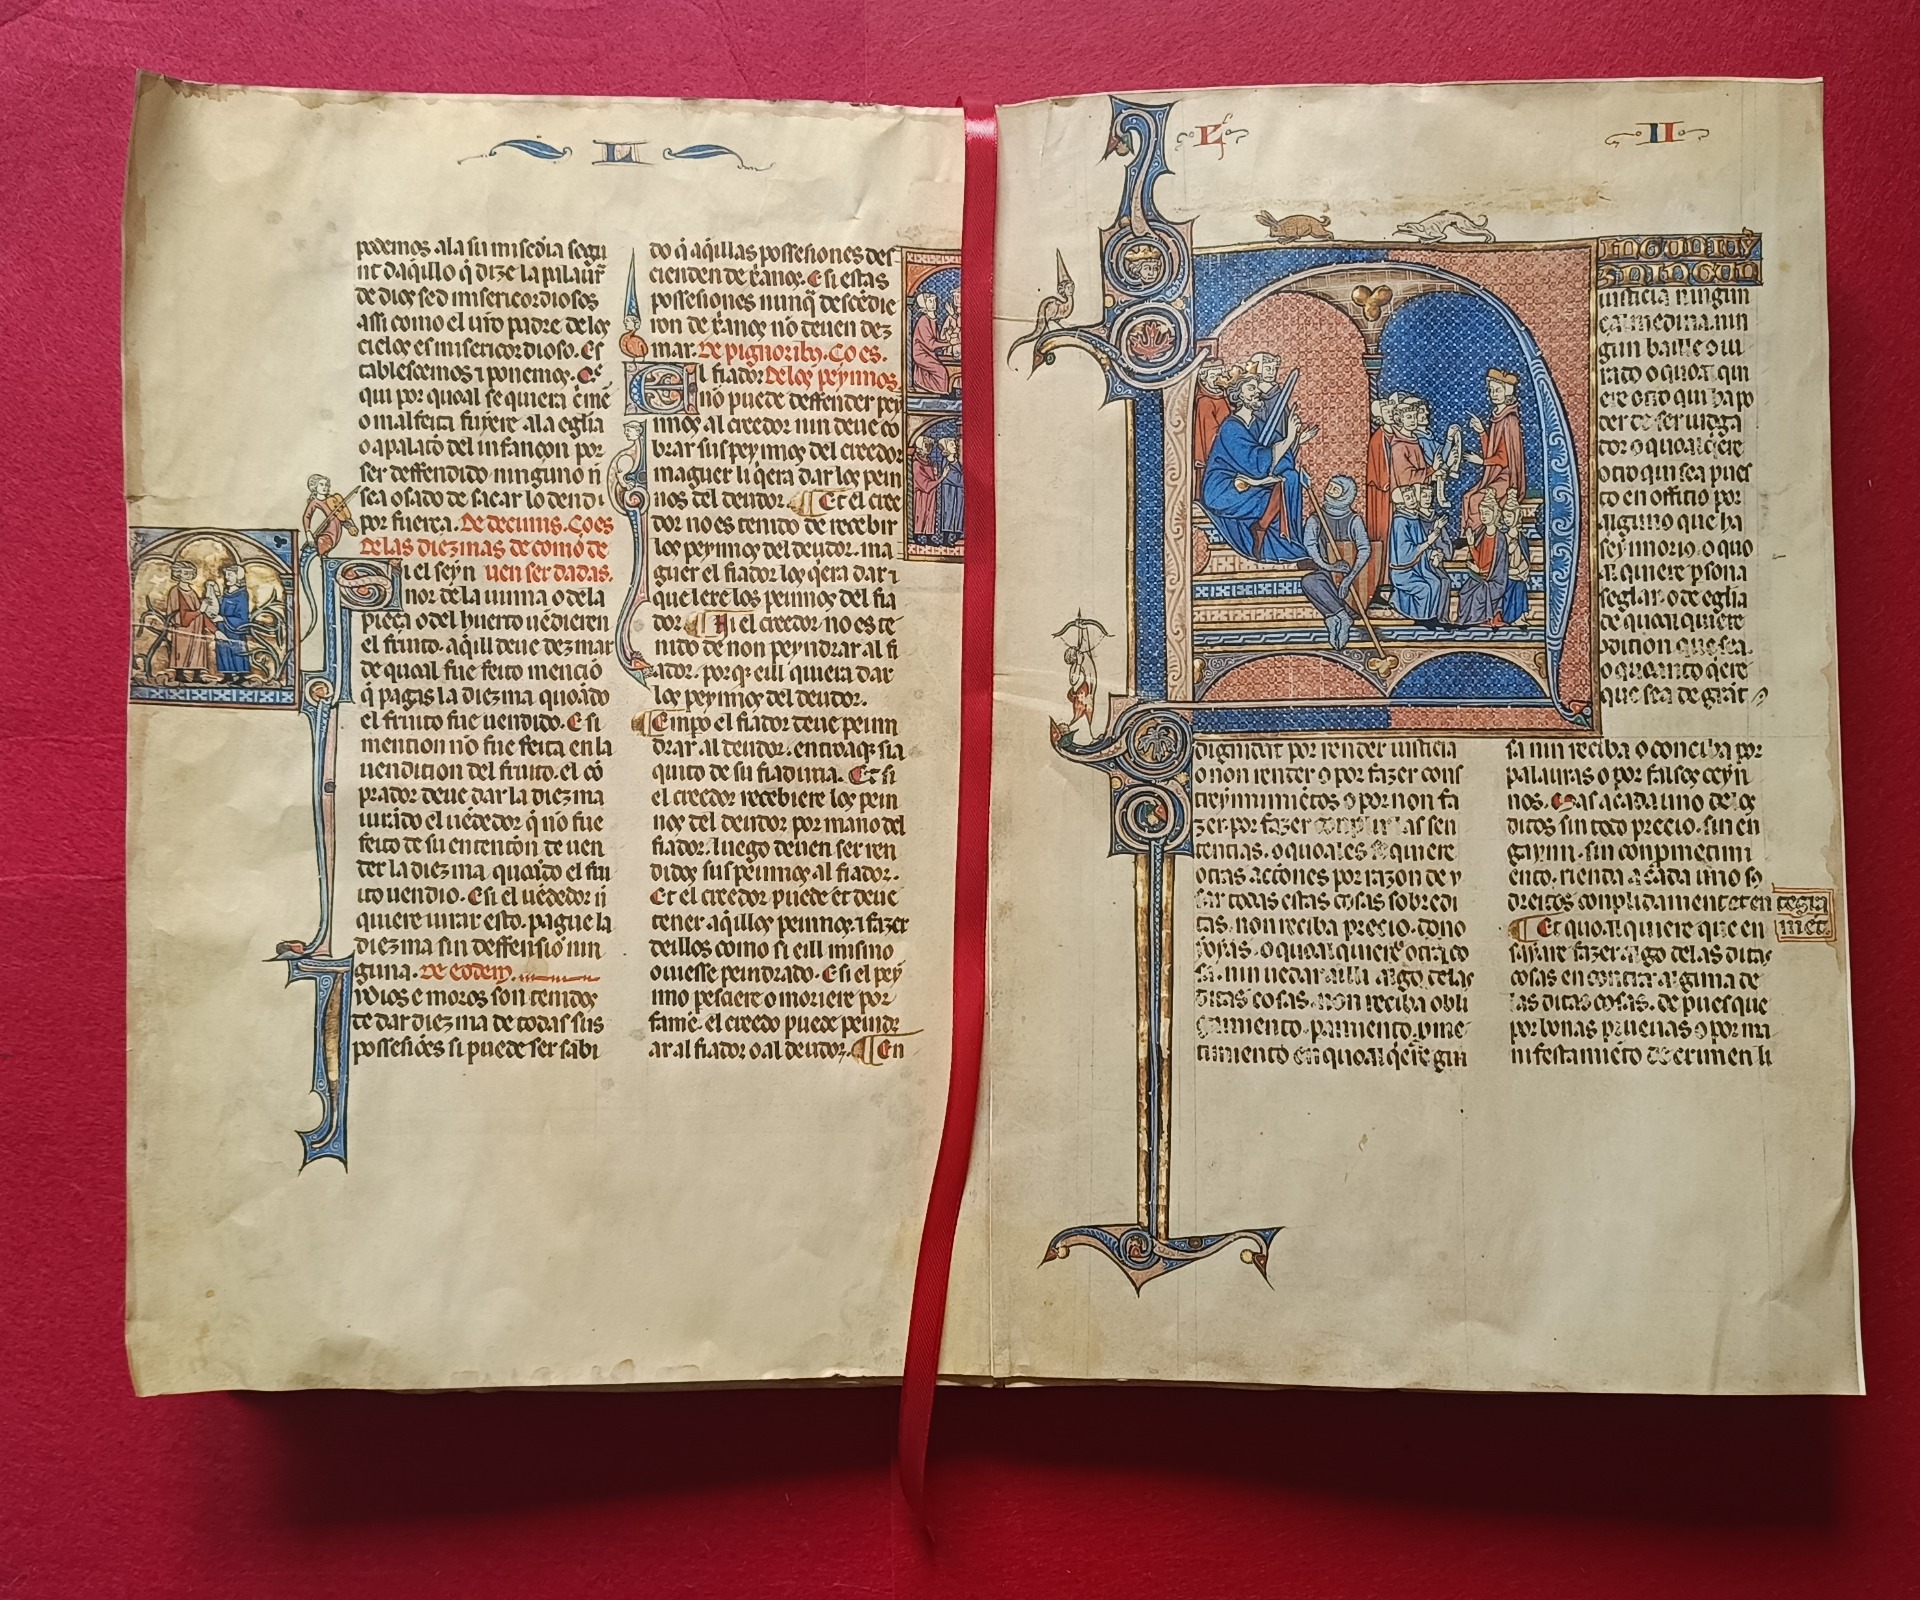 L
podemos. a la su miscďia segũ
nt daq̃llo q̃ dize la palaur̃
de dios sed misericordiosos
assi como el ũro padre delos
cielos es misericordioso. Es
tablescemos ⁊ ponemos. q̃
qui por qual se quiera c̃mẽ
o malfeita fuyere a la eglia
o a palacio del infançon por
ser deffendido ninguno ñ
sea osado de sacar lo dendi
por fuerça. De decimis. Co es
delas diezmas de comõ de
uen ser dadas.
Si el seyn
nor de la uinna o dela
pieça o del huerto uẽdieren
el fruito. aq̃ll deue dezmar
de qual fue feito menció
q̃ pagas la diezma quoãdo
el fruito fue uendido. E si
mention no fue feita en la
uendition del fruito. el cõ
prador deue dar la diezma
iurãdo el uẽdedor q̃ no fue
feito de su entención de uen
der la diezma quoãdo el fru
ito uendio. E si el uẽdedor ñ
quiere iurar esto. pague la
diezma sin deffensió nin
guna. De eodem.
Iudios e moros son tenidos
de dar diezma de todas sus
possesiões si puede ser sabi
do q̃ aq̃llas possesiones des
cienden de xr̃anos. E si estas
possesiones nunq̃ descẽdie
ron de xr̃anos no deuen dez
mar. De pignorib9. Co es.
Delos peynnos.
El fiador
no puede deffender pey
nnos al creedor nin deue co
brar sus peynnos del creedor
maguer li q̃era dar los pein
nos del deudor. Et el cree
dor no es tenido de recebir
los peynnos del deudor. ma
guer el fiador los q̃era dar ⁊
que lexe los peinnos del fia
dor. Ni el creedor no es te
nido de non peyndrar al fi
ador. por q̃ eill quiera dar
los peynnos del deudor.
Empo el fiador deue peinn
drar al deudor. entroaq̃ sia
quito de su fiaduria. Et si
el creedor recebiere los pein
nos del deudor por mano del
fiador. luego deuen ser ren
didos sus peinnos al fiador.
Et el creedor puede et deue
tener aq̃llos peinnos. ⁊ fazer
deillos como si eill mismo
ouiesse peindrado. E si el pey
nno pesciere o moriere por
fame. el creedo puede peindr
ar al fiador o al deudor. En
L II
iusticia ningun
çalmedina. nin
gun baille o iu
rado o quoal qui
ere otro qui ha po
der de ser iudga
dor o quoal q̃ere
otro qui sea pues
to en officio por
alguno que ha
seynnorio. o quo
al quiere ꝑsona
seglar. o de eglia
de qual quiere
ꝯdition que sea.
o quoanto q̃ere
que sea de grãt
dignidat por render iusticia
o non render o por fazer cons
treynnimiẽtos o por non fa
zer. por fazer conplir las sen
tencias. o quoales se quiere
otras actiones por razon de y
sar todas estas cosas sobredi
tas. non reciba precio. dono
ioyas. o quoal quiere otra co
sa. nin uedar ailli algo delas
ditas cosas. non reciba obli
gamiento. pamiento. ꝓme
timiento en quoal q̃ere gui
sa nin reciba o conciba por
palauras o por falsos ceyn
nos. Mas a cada uno delos
ditos sin todo precio. sin en
gaynn. sin conpmetimi
ento. rienda a cada uno so
dreitos conplidament et en tegra
ment.
Et quoal quiere que en
sayare fazer algo delas ditas
cosas en contra alguna de
las ditas cosas. de pues que
por bonas prueuas o por ma
nifestamiẽto de crimen li